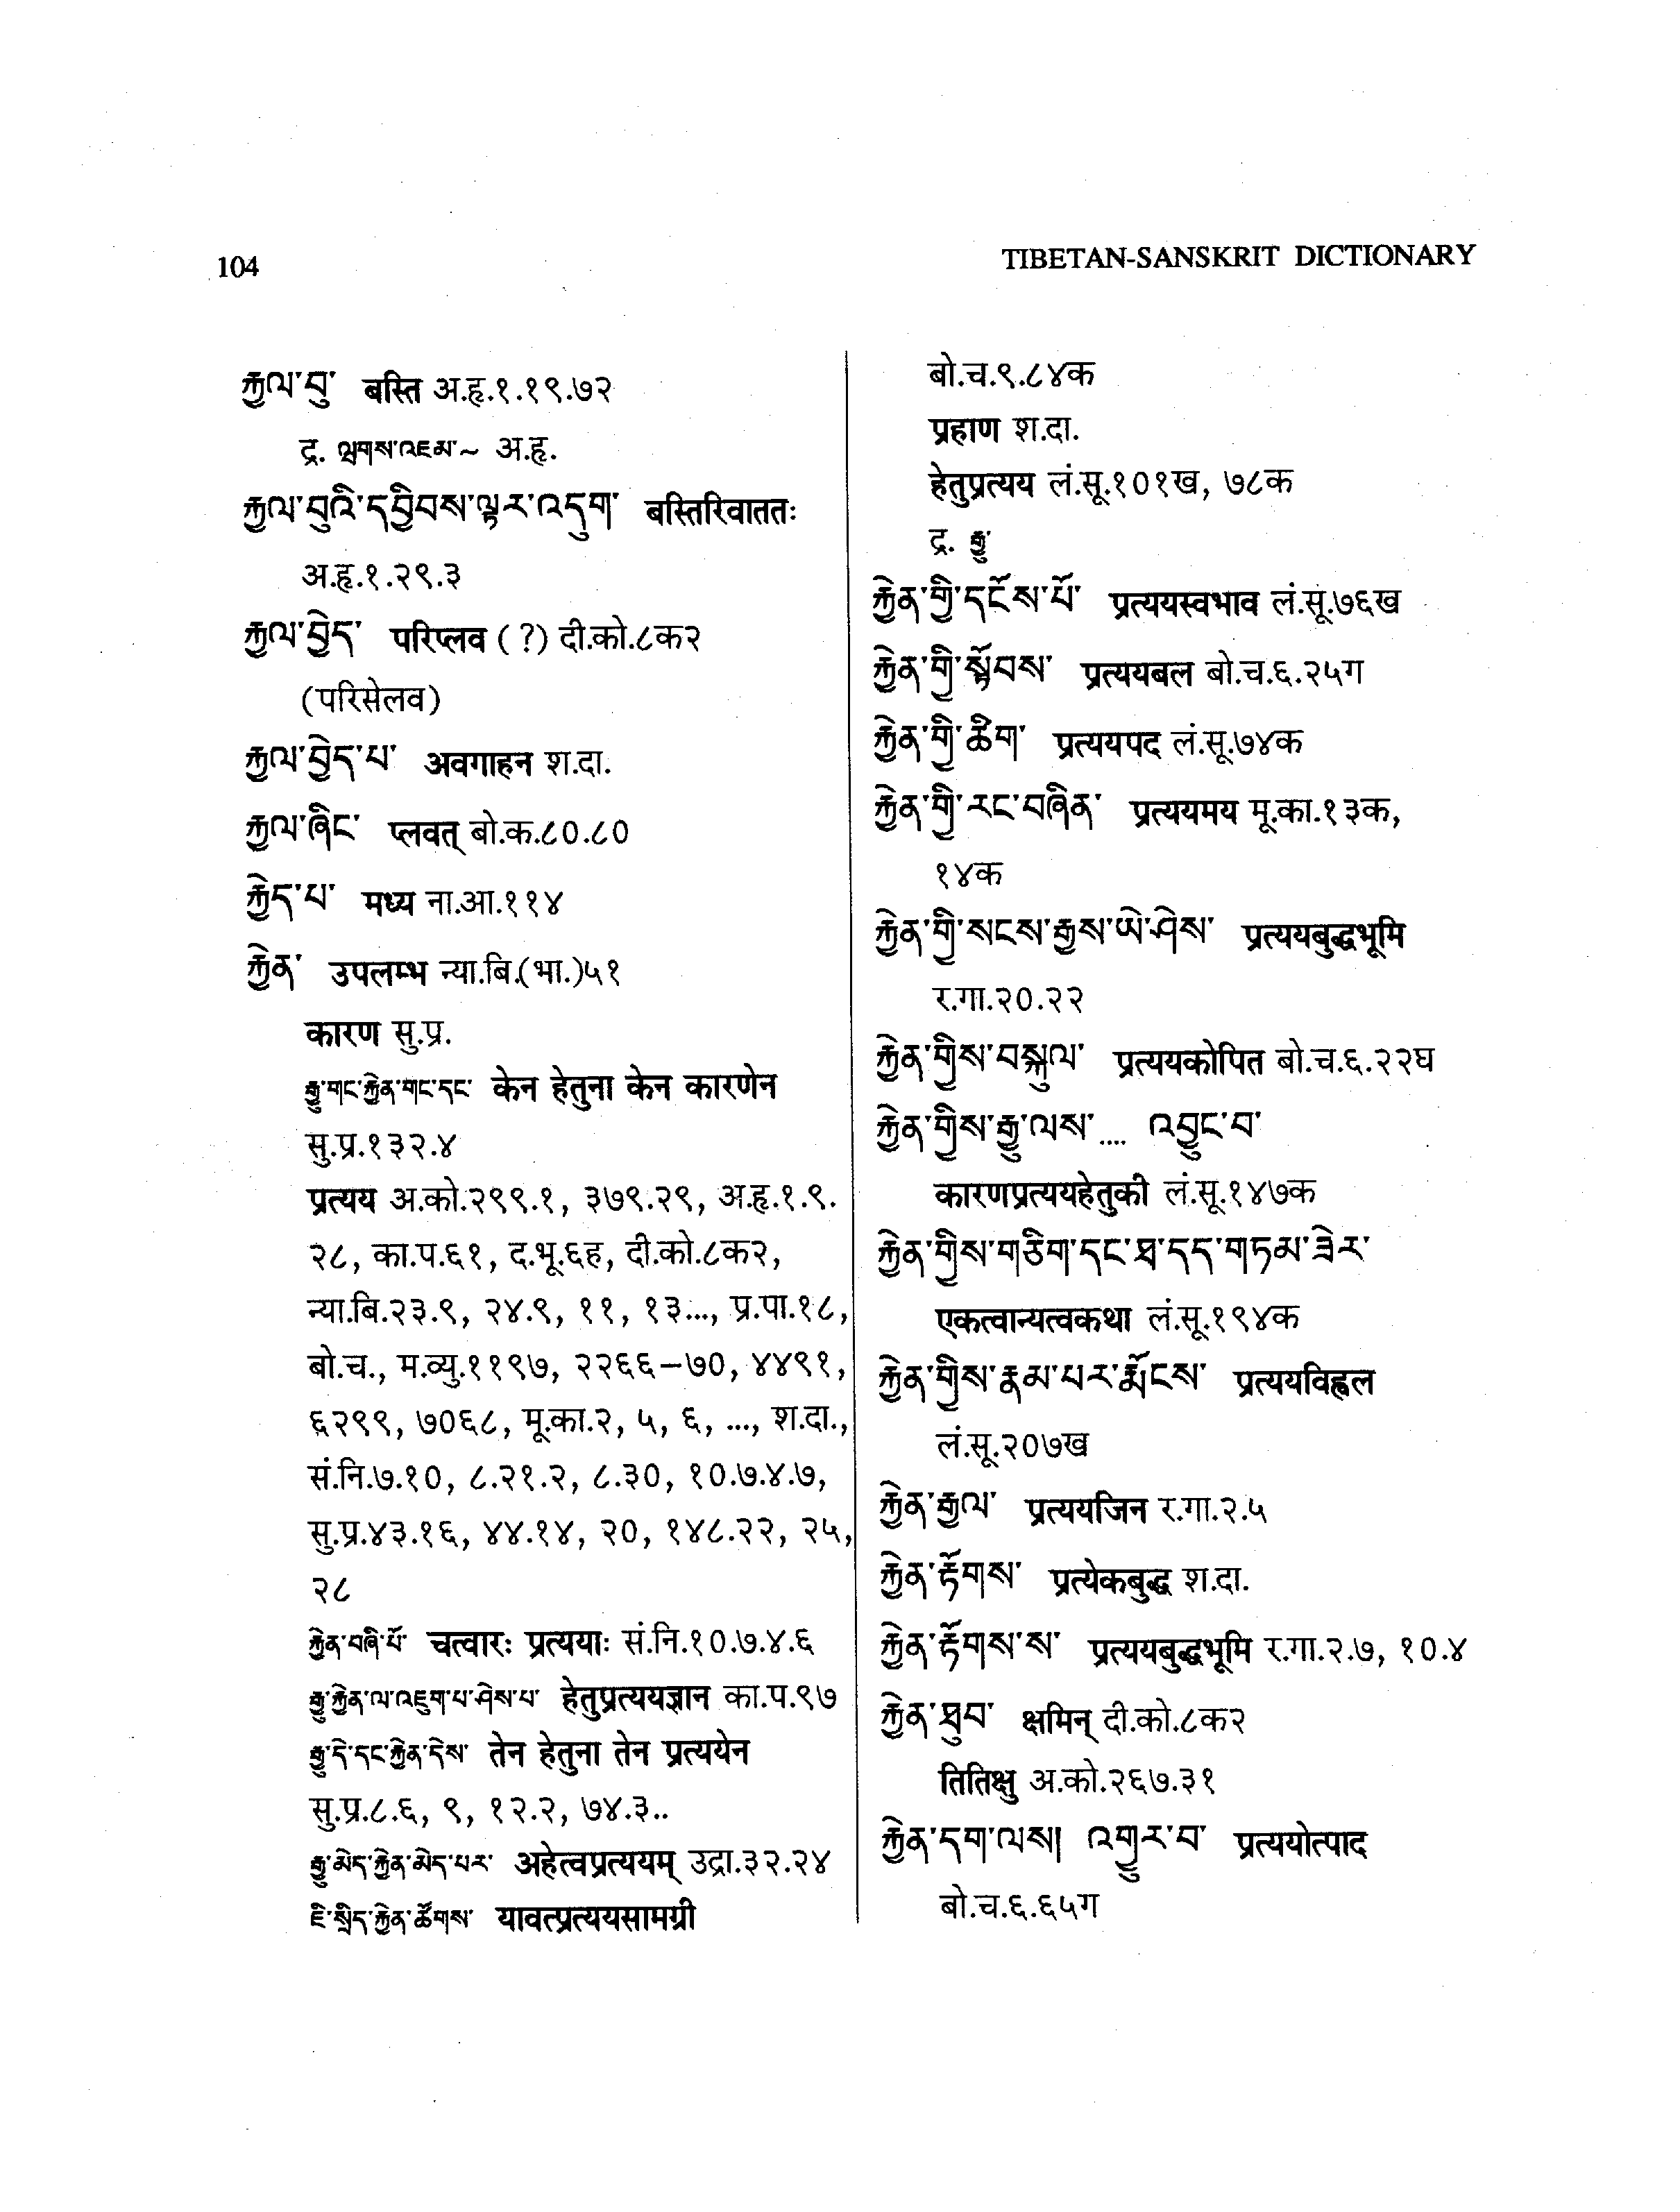 104
TIBETAN-SANSKRIT DICTIONARY
རྐྱལ་བུ་ बस्ति अ.हृ.१.१९.७२
द्र. ལྕགས་འཇམ་~ अ.हृ.
རྐྱལ་བུའི་དབྱིབས་ལྟར་འདུག་ बस्तिरिवाततः
अ.हृ.१.२९.३
རྐྱལ་བྱེད་ परिप्लव (?) दी.को.८क२
(परिसेलव)
རྐྱལ་བྱེད་པ་ अवगाहन श.दा.
རྐྱལ་ཞིང་ प्लवत् बो.क.८०.८०
རྐྱེད་པ་ मध्य ना.आ.११४
རྐྱེན་ उपलम्भ न्या.बि.(भा.)५१
कारण सु.प्र.
རྒྱུ་གང་རྐྱེན་གང་དང་ केन हेतुना केन कारणेन
सु.प्र.१३२.४
प्रत्यय अ.को.२९९.१, ३७९.२९, अ.हृ.१.९.
२८, का.प.६१, द.भू.६ह, दी.को.८क२,
न्या.बि.२३.९, २४.९, ११, १३..., प्र.पा.१८,
बो.च., म.व्यु.११९७, २२६६–७०, ४४९१,
६२९९, ७०६८, मू.का.२, ५, ६, ..., श.दा.,
सं.नि.७.१०, ८.२१.२, ८.३०, १०.७.४.७,
सु.प्र.४३.१६, ४४.१४, २०, १४८.२२, २५,
२८
རྐྱེན་བཞི་པོ་ चत्वारः प्रत्ययाः सं.नि.१०.७.४.६
རྒྱུ་རྐྱེན་ལ་འཇུག་པ་ཤེས་པ་ हेतुप्रत्ययज्ञान का.प.९७
རྒྱུ་དེ་དང་རྐྱེན་དེས་ तेन हेतुना तेन प्रत्ययेन
सु.प्र.८.६, ९, १२.२, ७४.३..
རྒྱུ་མེད་རྐྱེན་མེད་པར་ अहेत्वप्रत्ययम् उद्रा.३२.२४
ཇི་སྲིད་རྐྱེན་ཚོགས་ यावत्प्रत्ययसामग्री
बो.च.९.८४क
प्रहाण श.दा.
हेतुप्रत्यय लं.सू.१०१ख, ७८क
द्र. རྒྱུ་
རྐྱེན་གྱི་དངོས་པོ་ प्रत्ययस्वभाव लं.सू.७६ख
རྐྱེན་གྱི་སྟོབས་ प्रत्ययबल बो.च.६.२५ग
རྐྱེན་གྱི་ཚིག་ प्रत्ययपद लं.सू.७४क
རྐྱེན་གྱི་རང་བཞིན་ प्रत्ययमय मू.का.१३क,
१४क
རྐྱེན་གྱི་སངས་རྒྱས་ཡེ་ཤེས་ प्रत्ययबुद्धभूमि
र.गा.२०.२२
རྐྱེན་གྱིས་བསྐུལ་ प्रत्ययकोपित बो.च.६.२२घ
རྐྱེན་གྱིས་རྒྱུ་ལས་.... འབྱུང་བ་
कारणप्रत्ययहेतुकी लं.सू.१४७क
རྐྱེན་གྱིས་གཅིག་དང་ཐ་དད་གཏམ་ཟེར་
एकत्वान्यत्वकथा लं.सू.१९४क
རྐྱེན་གྱིས་རྣམ་པར་རྨོངས་ प्रत्ययविह्वल
लं.सू.२०७ख
རྐྱེན་རྒྱལ་ प्रत्ययजिन र.गा.२.५
རྐྱེན་རྟོགས་ प्रत्येकबुद्ध श.दा.
རྐྱེན་རྟོགས་ས་ प्रत्ययबुद्धभूमि र.गा.२.७, १०.४
རྐྱེན་ཐུབ་ क्षमिन् दी.को.८क२
तितिक्षु अ.को.२६७.३१
རྐྱེན་དག་ལས། འགྱུར་བ་ प्रत्ययोत्पाद
बो.च.६.६५ग